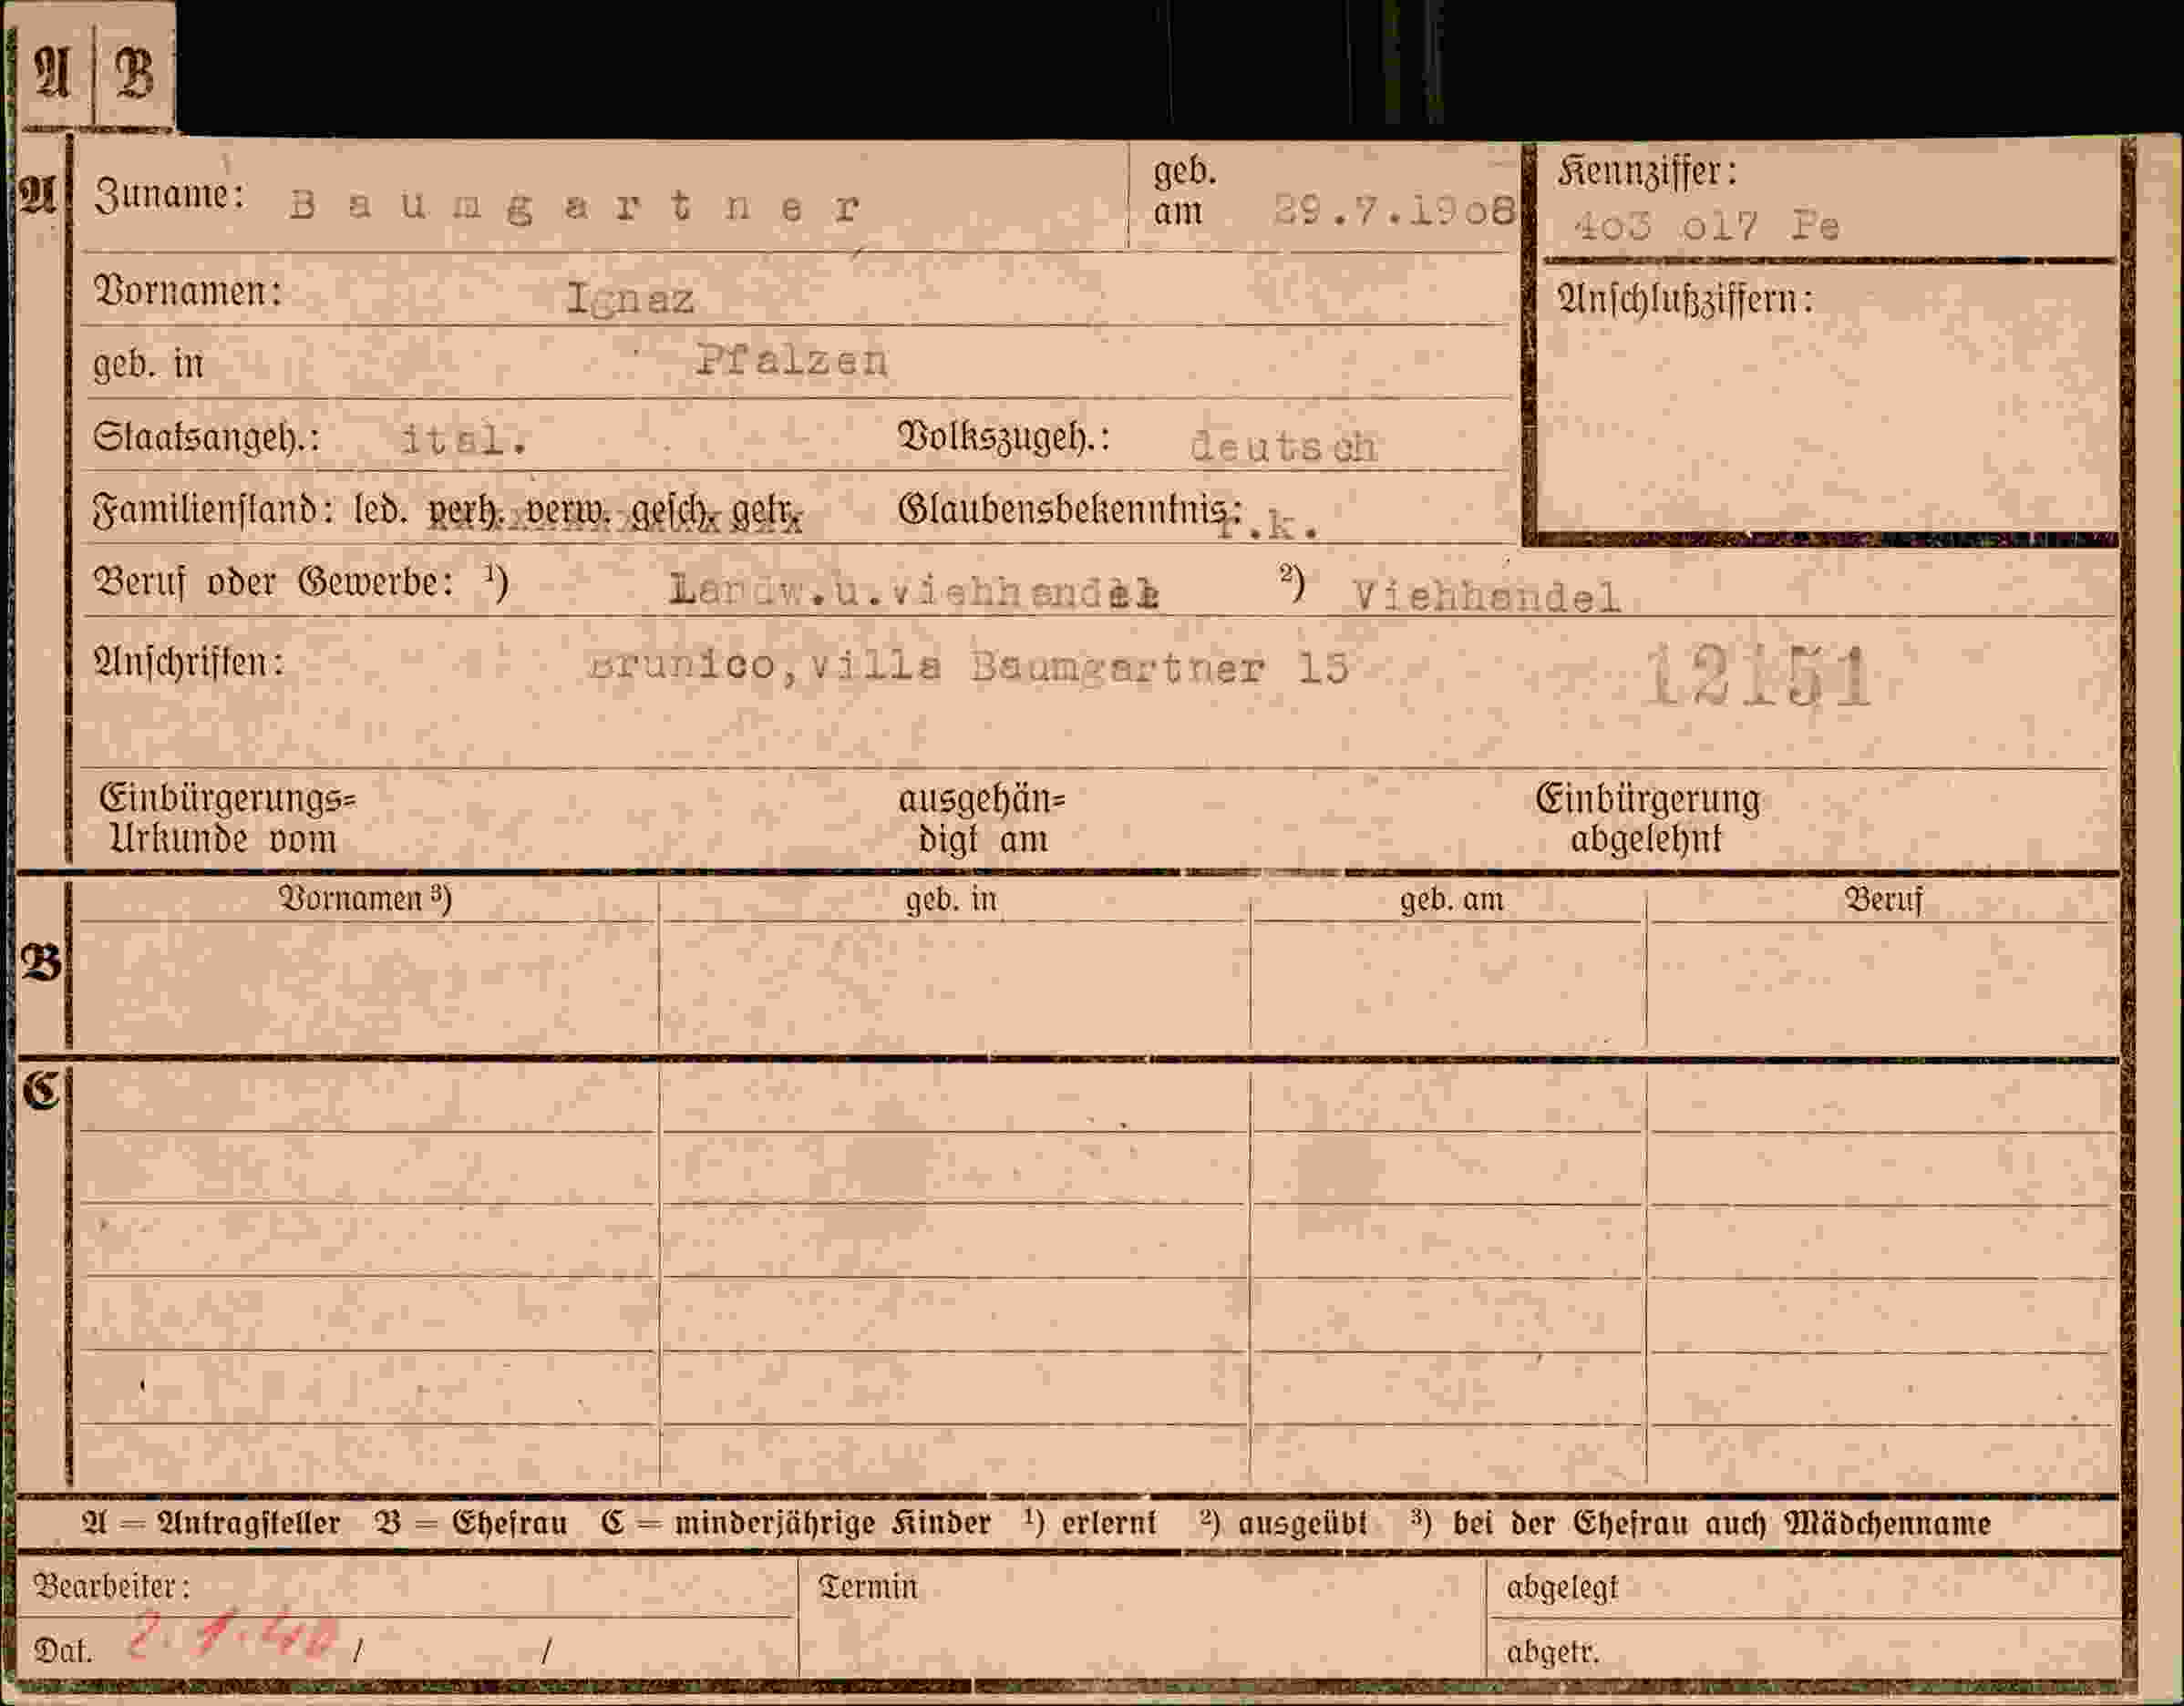 A B
A Zuname: Baumgartner geb. am 29.7.1908 Kennziffer: 403 017 Pe
Vornamen: Ignaz Anschlußziffern:
geb. in Pfalzen
Staatsangeh.: ital. Volkszugeh.: deutsch
Familienstand: led. verh. verw. gesch. getr. Glaubensbekenntnis: r.k.
Beruf oder Gewerbe: ¹) Landw.u.viehhandel ²) Viehhandel
Anschriften: Brunico, villa Baumgartner 15 12151
Einbürgerungs= ausgehän= Einbürgerung
Urkunde vom digt am abgelehnt
B Vornamen ³) geb. in geb. am Beruf
C
A = Antragsteller B = Ehefrau C = minderjährige Kinder ¹) erlernt ²) ausgeübt ³) bei der Ehefrau auch Mädchenname
Bearbeiter: Termin abgelegt
Dat. 2. 1. 40 / / abgetr.